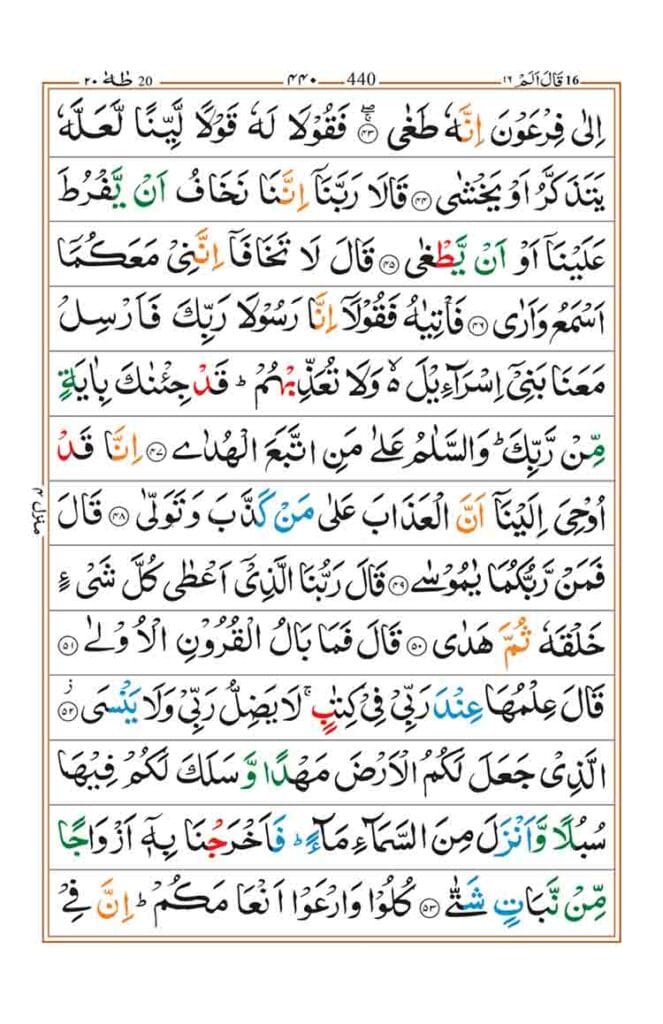 20 طٰهٰ ۲۰ 440 ۴۴۰ 16 قَالَ اَلَمْ ۱۶
اِلٰى فِرْعَوْنَ اِنَّهٗ طَغٰى ۚۖ‏﴿۴۳﴾ فَقُوْلَا لَهٗ قَوْلًا لَّيِّنًا لَّعَلَّهٗ
يَتَذَكَّرُ اَوْ يَخْشٰى ﴿۴۴﴾ قَالَا رَبَّنَاۤ اِنَّنَا نَخَافُ اَنْ يَّفْرُطَ
عَلَيْنَاۤ اَوْ اَنْ يَّطْغٰى ﴿۴۵﴾ قَالَ لَا تَخَافَاۤ اِنَّنِىْ مَعَكُمَاۤ
اَسْمَعُ وَاَرٰى ﴿۴۶﴾ فَاْتِيٰهُ فَقُوْلَاۤ اِنَّا رَسُوْلَا رَبِّكَ فَاَرْسِلْ
مَعَنَا بَنِىْۤ اِسْرَآءِيْلَ ۙ وَلَا تُعَذِّبْهُمْ ؕ قَدْ جِئْنٰكَ بِاٰيَةٍ
مِّنْ رَّبِّكَ ؕ وَالسَّلٰمُ عَلٰى مَنِ اتَّبَعَ الْهُدٰى ﴿۴۷﴾ اِنَّا قَدْ
اُوْحِىَ اِلَيْنَاۤ اَنَّ الْعَذَابَ عَلٰى مَنْ كَذَّبَ وَتَوَلّٰى ﴿۴۸﴾ قَالَ
فَمَنْ رَّبُّكُمَا يٰمُوْسٰى ﴿۴۹﴾ قَالَ رَبُّنَا الَّذِىْۤ اَعْطٰى كُلَّ شَىْءٍ
خَلْقَهٗ ثُمَّ هَدٰى ﴿۵۰﴾ قَالَ فَمَا بَالُ الْقُرُوْنِ الْاُوْلٰى ﴿۵۱﴾
قَالَ عِلْمُهَا عِنْدَ رَبِّىْ فِىْ كِتٰبٍ ۚ لَا يَضِلُّ رَبِّىْ وَلَا يَنْسَى ﴿۵۲﴾ ز
الَّذِىْ جَعَلَ لَكُمُ الْاَرْضَ مَهْدًا وَّ سَلَكَ لَكُمْ فِيْهَا
سُبُلًا وَّاَنْزَلَ مِنَ السَّمَآءِ مَآءً ؕ فَاَخْرَجْنَا بِهٖۤ اَزْوَاجًا
مِّنْ نَّبَاتٍ شَتّٰى ﴿۵۳﴾ كُلُوْا وَارْعَوْا اَنْعَامَكُمْ ؕ اِنَّ فِىْ
منزل ۴